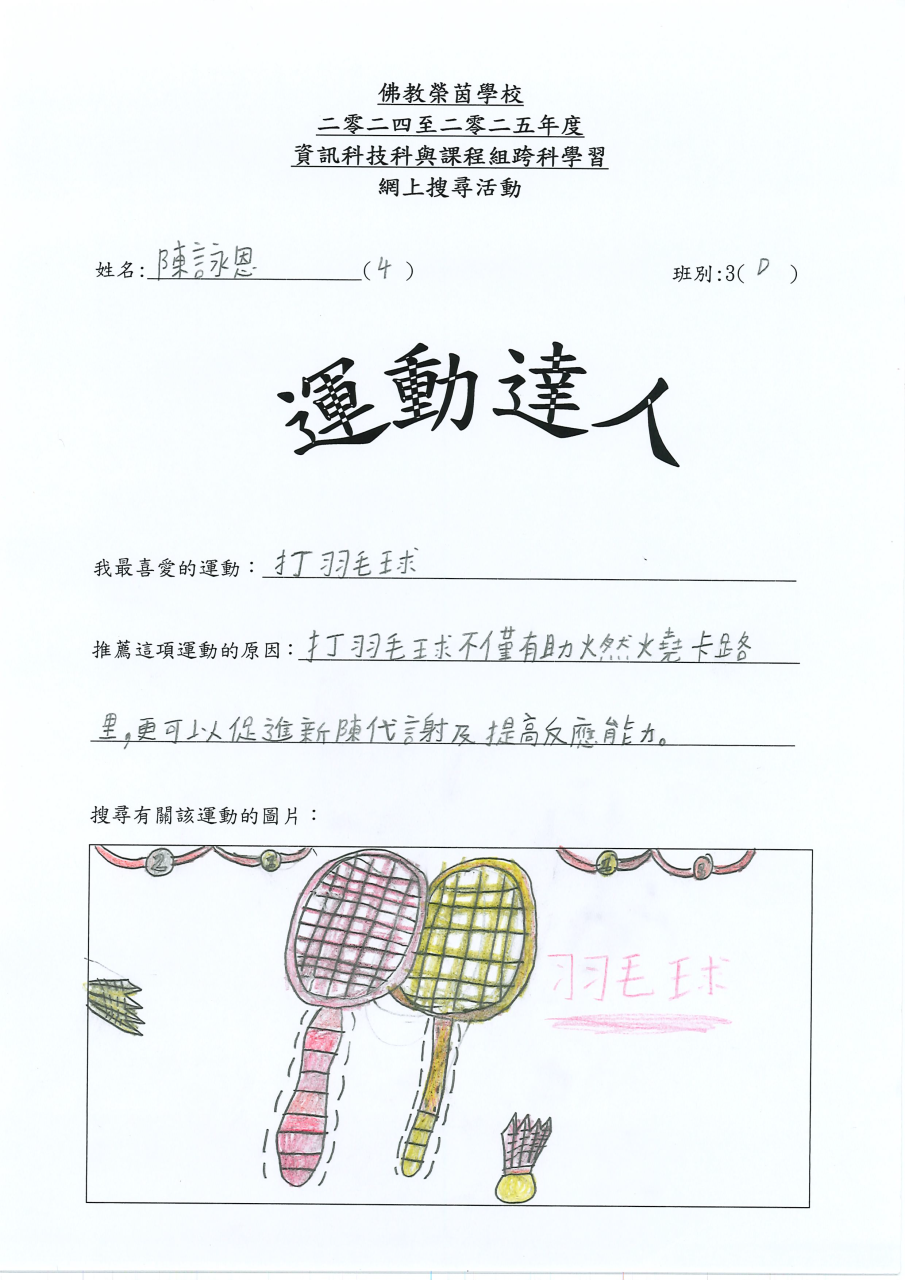 佛教榮茵學校
二零二四至二零二五年度
資訊科技科與課程組跨科學習
網上搜尋活動
姓名:陳詠恩(4) 班別:3(D)
運動達人
我最喜愛的運動：打羽毛球
推薦這項運動的原因：打羽毛球不僅有助燃燒卡路
里,更可以促進新陳代謝及提高反應能力。
搜尋有關該運動的圖片：
2 1 1
羽毛球